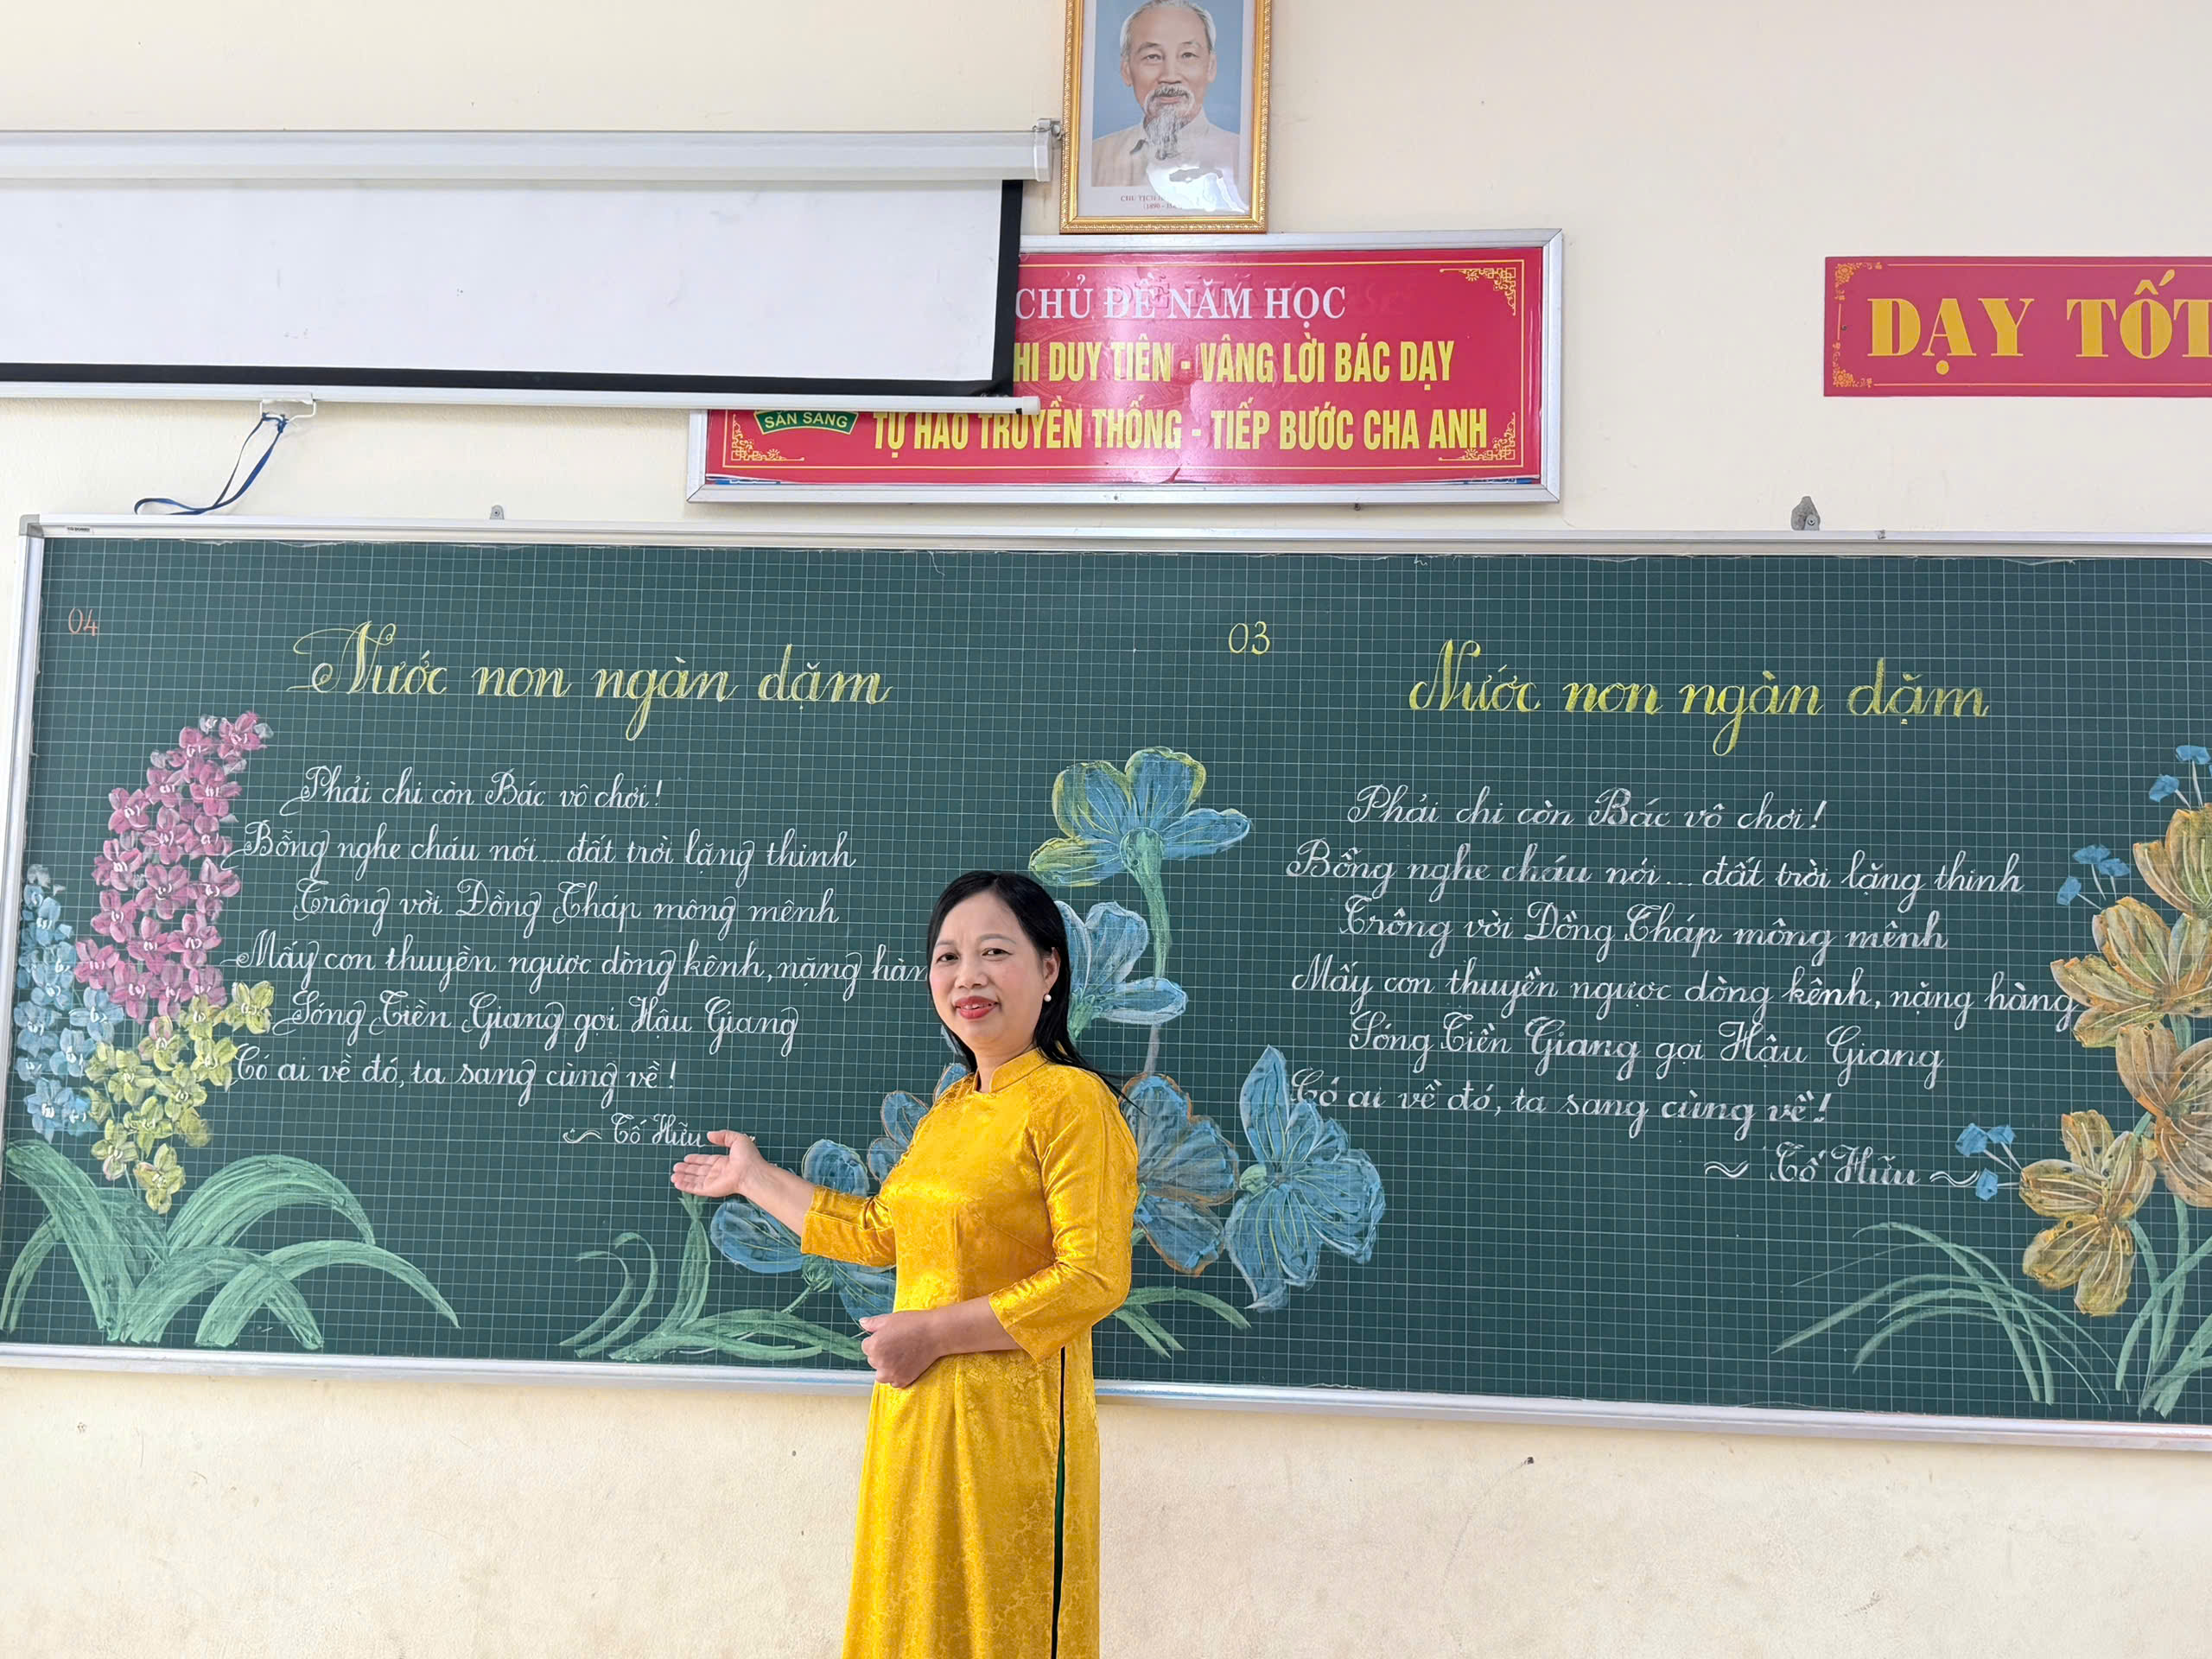 CHỦ ĐỀ NĂM HỌC
HI DUY TIÊN - VÂNG LỜI BÁC DẠY
SẴN SÀNG
TỰ HÀO TRUYỀN THỐNG - TIẾP BƯỚC CHA ANH
DẠY TỐT
04
Nước non ngàn dặm
Phải chi còn Bác vô chơi!
Bỗng nghe cháu nói... đất trời lặng thinh
Trông vời Đồng Tháp mông mênh
Mấy con thuyền ngược dòng kênh, nặng hàn
Sóng Tiền Giang gọi Hậu Giang
Có ai về đó, ta sang cùng về!
~ Tố Hữu
03
Nước non ngàn dặm
Phải chi còn Bác vô chơi!
Bỗng nghe cháu nói... đất trời lặng thinh
Trông vời Đồng Tháp mông mênh
Mấy con thuyền ngược dòng kênh, nặng hàng
Sóng Tiền Giang gọi Hậu Giang
Có ai về đó, ta sang cùng về!
~ Tố Hữu ~